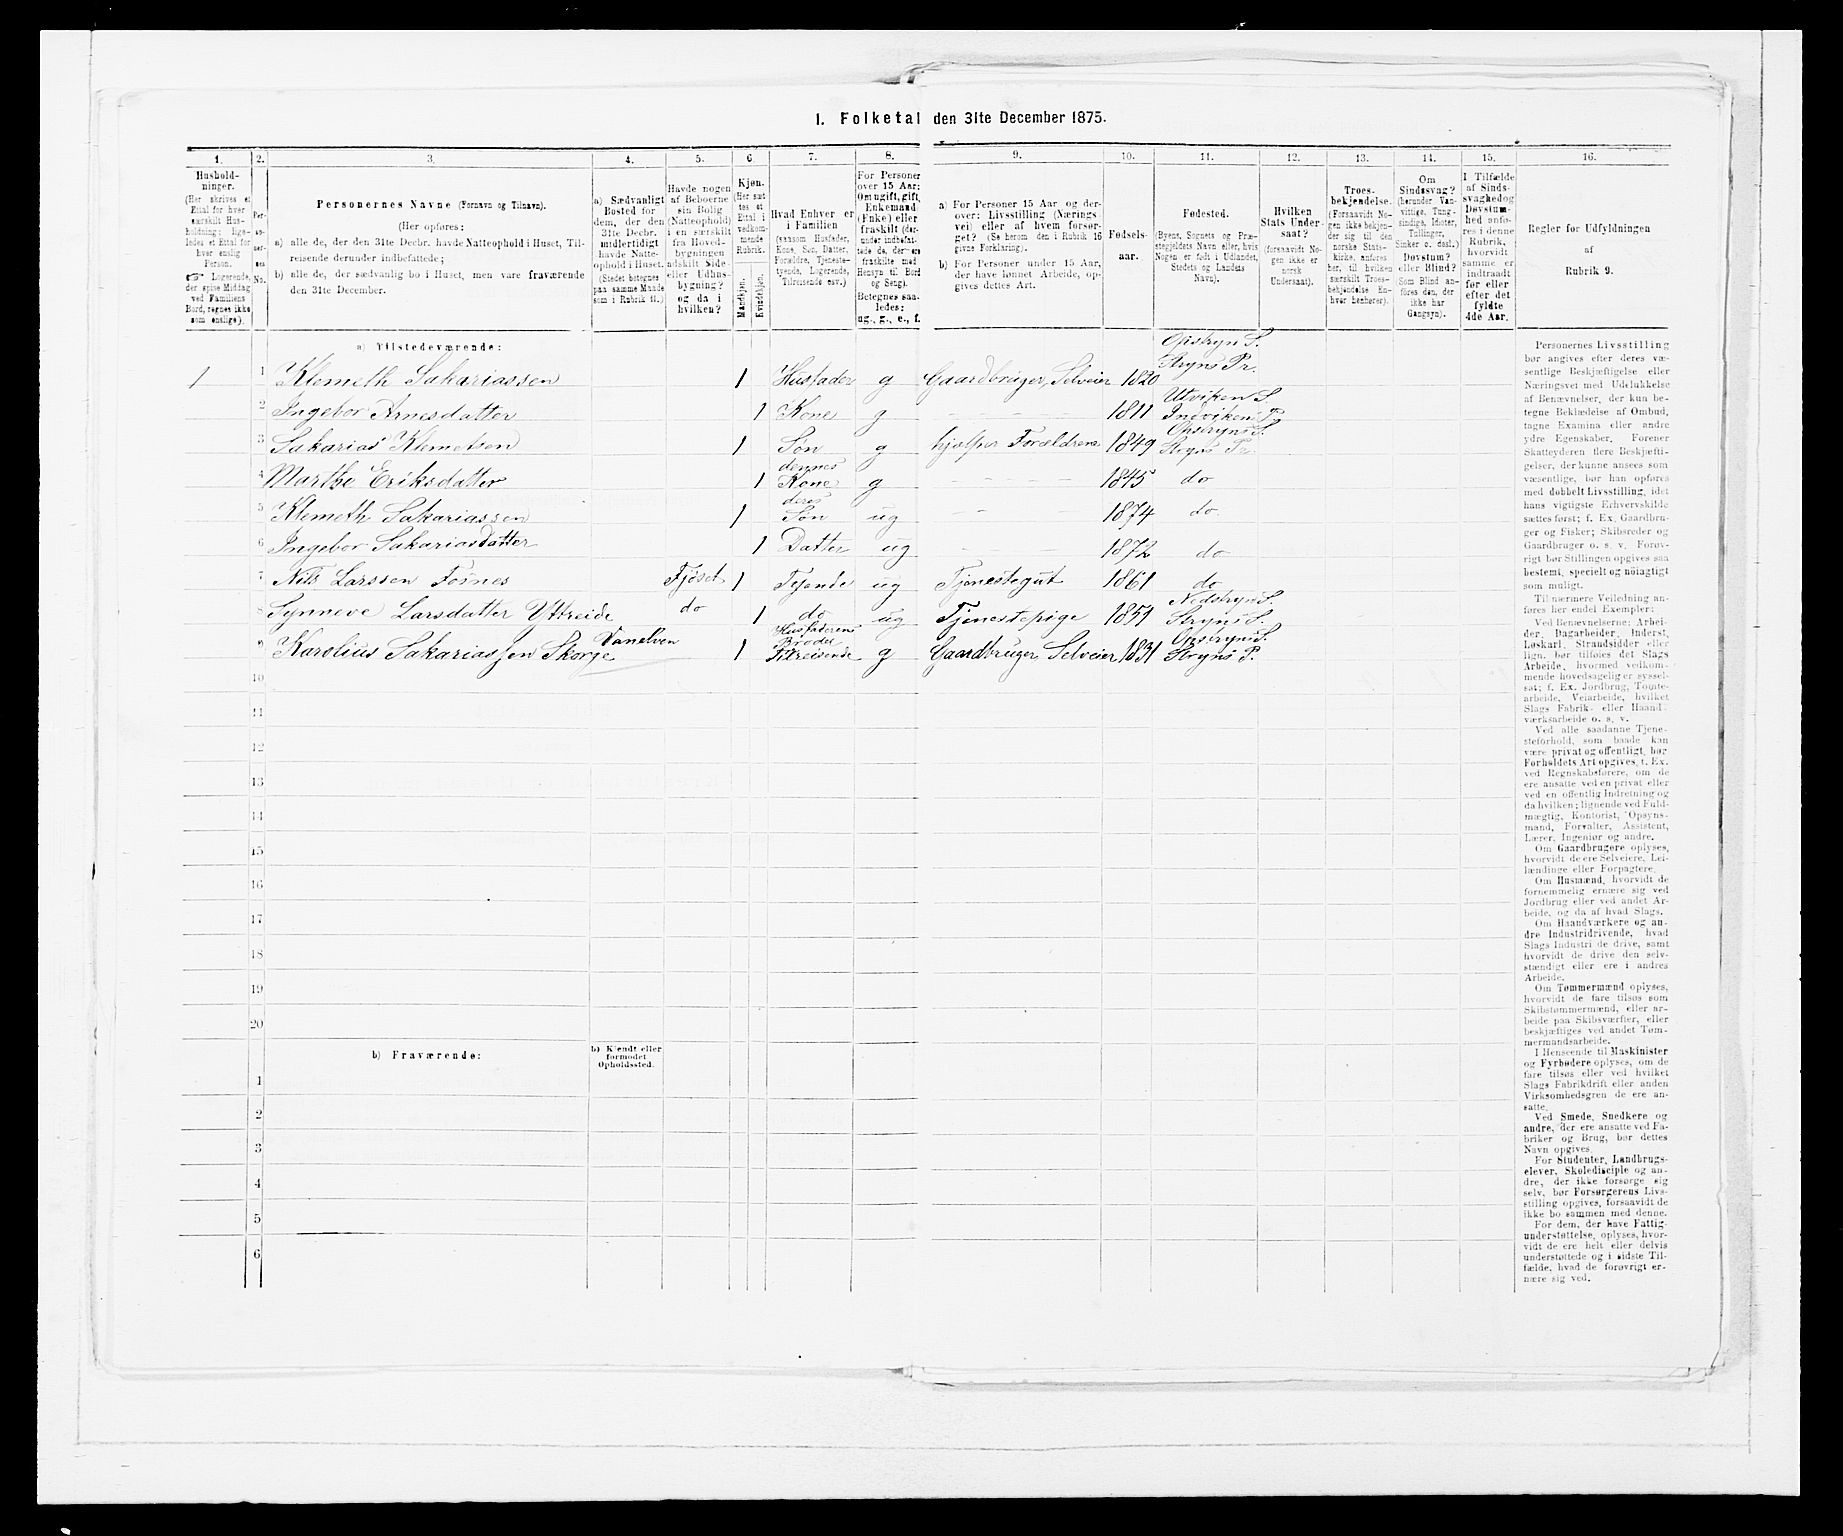 1. Folketal den 31te December 1875.
1. 2. 3. 4. 5. 6. 7. 8. 9. 10. 11. 12. 13. 14. 15. 16.
Hushold-
ninger.
(Her skrives et
Ettal for hver
særskilt Hus-
holdning; lige-
ledes et Ettal for
hver enslig
Person.
☞ Logerende,
der spise Middag
ved Familiens
Bord, regnes ikke
som enslige).
Per-
so-
ner-
nes
No.
Personernes Navne (Fornavn og Tilnavn).
(Her opføres:
a) alle de, der den 31te Decbr. havde Natteophold i Huset, Til-
reisende derunder indbefattede;
b) alle de, der sædvanlig bo i Huset, men vare fraværende
den 31te December.
a) Sædvanligt
Bosted for
dem, der den
31te Decbr.
midlertidigt
havde Natte-
ophold i Huset.
(Stedet betegnes
paa samme Maade
som i Rubrik 11.)
Havde nogen
af Beboerne
sin Bolig
(Natteophold)
i en særskilt
fra Hoved-
bygningen
adskilt Side-
eller Udhus-
bygning?
og da i
hvilken?
Kjøn.
(Her sæt-
tes et
Ettal i
vedkom-
mende
Rubrik.
Mandkjøn.
Kvindekjøn.
Hvad Enhver er
i Familien
(saasom Husfader,
Kone, Søn, Datter,
Forældre, Tjeneste-
tyende, Logerende,
Tilreisende osv.)
For Personer
over 15 Aar:
Om ugift, gift,
Enkemand
(Enke) eller
fraskilt (der-
under indbefat-
tede de, der ere
fraskilte med
Hensyn til Bord
og Seng).
Betegnes saa-
ledes:
ug., g., e., f.
a) For Personer 15 Aar og der-
over: Livsstilling (Nærings-
vei) eller af hvem forsør-
get? (Se herom den i Rubrik 16
givne Forklaring).
b) For Personer under 15 Aar,
der have lønnet Arbeide, op-
gives dettes Art.
Fødsels-
aar.
Fødested.
(Byens, Sognets og Præ-
stegjeldets Navn eller, hvis
Nogen er født i Udlandet,
Stedets og Landets
Navn).
Hvilken
Stats Under-
saat?
(forsaavidt No-
gen ikke er
norsk
Undersaat).
Troes-
bekjendelse.
(Forsaavidt No-
gen ikke bekjen-
der sig til den
norske Stats-
kirke, anføres
her, til hvilken
særskilt Troes-
bekjendelse En-
hver henhører).
Om
Sindssvag?
(herunder Van-
vittige, Tung-
sindige, Idioter,
Tullinger,
Sinker o. desl.)
Døvstum?
eller Blind?
Som Blind an-
føres den, der
ikke har
Gangsyn).
I Tilfælde
af Sinds-
svaghed og
Døvstum-
hed anfø-
res i denne
Rubrik,
hvorvidt
samme er
indtraadt
før eller
efter det
fyldte
4de Aar.
Regler for Udfyldningen
af
Rubrik 9.
a) Tilstedeværende:
Opstryn S.
1 1 Klemeth Sakariassen 1 Husfader g Gaardbruger, Selveier 1820 Stryns Pr.
Utviken S.
2 Ingebor Arnesdatter 1 Kone g - - - - 1811 Indviken P
Opstryns S.
3 Sakarias Klemetsen 1 Søn g hjælper Forældrene 1849 Stryns Pr
dennes
4 Marthe Eriksdatter 1 Kone g - - - - 1845 do
deres
5 Klemeth Sakariassen 1 Søn ug - - 1874 do.
6 Ingebor Sakariasdatter 1 Datter ug - - 1872 do
7 Nils Larssen Foines Fjöset 1 Tjende ug Tjenestegut 1861 do
Nedstryn S.
8 Synneve Larsdatter Yttreide do 1 do ug Tjenestepige 1859 Stryns S.
Husfaderens
Broder Opstryns S.
9 Karolius Sakariassen Skorge Vanelven 1 Tilreisende g Gaardbruger Selveier 1831 Stryns P.
10
11
12
13
14
15
16
17
18
19
20
b) Fraværende:
b) Kjendt eller
formodet
Opholdssted.
1
2
3
4
5
6
Personernes Livsstilling
bør angives efter deres væ-
sentlige Beskjæftigelse eller
Næringsvei med Udelukkelse
af Benævnelser, der kun be-
tegne Beklædelse af Ombud,
tagne Examina eller andre
ydre Egenskaber. Forener
Skatteyderen flere Beskjæfti-
gelser, der kunne ansees som
væsentlige, bør han opføres
med dobbelt Livsstilling, idet
hans vigtigste Erhvervskilde
sættes først; f. Ex. Gaardbru-
ger og Fisker; Skibsreder og
Gaardbruger o. s. v. Forøv-
rigt bør Stillingen opgives saa
bestemt, specielt og nøiagtigt
som muligt.
Til nærmere Veiledning an-
føres her endel Exempler:
Ved Benævnelserne: Arbei-
der, Dagarbeider, Inderst,
Løskarl, Strandsidder eller
lign. bør tilføies det Slags
Arbeide, hvormed vedkom-
mende hovedsagelig er syssel-
sat; f. Ex. Jordbrug, Tomte-
arbeide, Veiarbeide, hvilket
Slags Fabrik- eller Haand-
værksarbeide o. s. v.
Ved alle saadanne Tjene-
steforhold, som baade kan
være privat og offentligt, bør
Forholdets Art opgives, t. Ex.
ved Regnskabsførere, om de
ere ansatte ved en privat eller
ved en offentlig Indretning og
da hvilken; lignende ved Fuld-
mægtig, Kontorist, Opsyns-
mand, Forvalter, Assistent,
Lærer, Ingeniør og andre.
Om Gaardbrugere oplyses,
hvorvidt de ere Selveiere, Lei-
lændinge eller Forpagtere.
Om Husmænd, hvorvidt de
fornemmelig ernære sig ved
Jordbrug eller ved andet Ar-
beide, og da af hvad Slags.
Om Haandværkere og an-
dre Industridrivende, hvad
Slags Industri de drive, samt
hvorvidt de drive den selv-
stændigt eller ere i andres
Arbeide.
Om Tømmermænd oplyses,
hvorvidt de fare tilsøs som
Skibstømmermænd, eller ar-
beide paa Skibsværfter, eller
beskjæftiges ved andet Tøm-
mermandsarbeide.
I Henseende til Maskinister
og Fyrbødere oplyses, om de
fare tilsøs eller ved hvilket
Slags Fabrikdrift eller anden
Virksomhedsgren de ere an-
satte.
Ved Smede, Snedkere og
andre, der ere ansatte ved Fa-
briker og Brug, bør dettes
Navn opgives.
For Studenter, Landbrugs-
elever, Skoledisciple og an-
dre, der ikke forsørge sig
selv, bør Forsørgerens Livs-
stilling opgives, forsaavidt de
ikke bo sammen med denne.
For dem, der have Fattig-
understøttelse, oplyses, hvor-
vidt de ere helt eller delvis
understøttede og i sidste Til-
fælde, hvad de forøvrigt er-
nære sig ved.